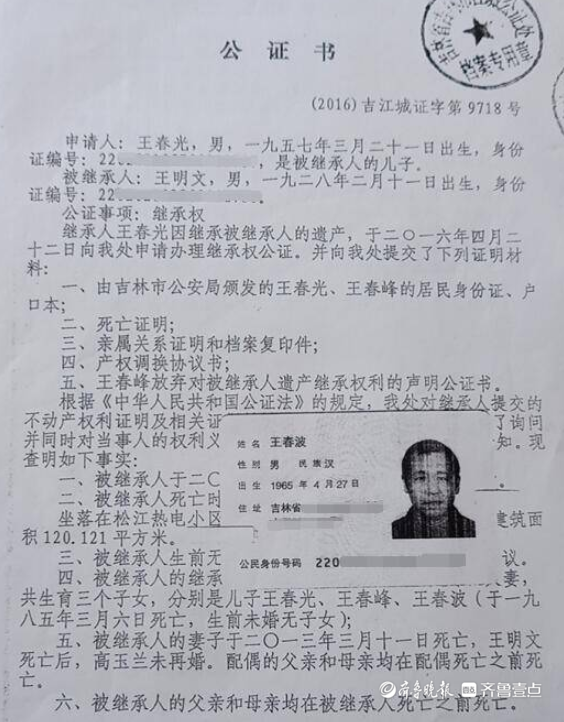 公证书
档案专用章
(2016)吉江城证字第 9718 号
申请人：王春光，男，一九五七年三月二十一日出生，身份
证编号：220，是被继承人的儿子。
被继承人：王明文，男，一九二八年二月十一日出生，身份
证编号：220。
公证事项：继承权
继承人王春光因继承被继承人的遗产，于二〇一六年四月二
十二日向我处申请办理继承权公证。并向我处提交了下列证明材
料：
一、由吉林市公安局颁发的王春光、王春峰的居民身份证、户
口本；
二、死亡证明；
三、亲属关系证明和档案复印件；
四、产权调换协议书；
五、王春峰放弃对被继承人遗产继承权利的声明公证书。
根据《中华人民共和国公证法》的规定，我处对继承人提交的
不动产权利证明及相关证 了询问
并同时对当事人的权利义 知。现
查明如下事实：
一、被继承人于二〇 。
二、被继承人死亡时
坐落在松江热电小区 建筑面
积 120.121 平方米。
三、被继承人生前无 议。
四、被继承人的继承 妻，
共生育三个子女，分别是儿子王春光、王春峰、王春波（于一九
八五年三月六日死亡，生前未婚无子女）；
五、被继承人的妻子于二〇一三年三月十一日死亡，王明文
死亡后，高玉兰未再婚。配偶的父亲和母亲均在配偶死亡之前死
亡。
六、被继承人的父亲和母亲均在被继承人死亡之前死亡。
姓名 王春波
性别 男 民族 汉
出生 1965 年 4 月 27 日
住址 吉林省
公民身份号码 220
齐鲁晚报 齐鲁壹点